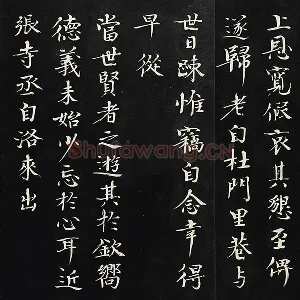 上恩寬假哀其懇至俾
遂歸老自杜門里巷与
世日踈惟竊自念幸得
早從
當世賢者之遊其於欽嚮
德義未始少忘于心耳近
張寺丞自洛來出
Shufawang.CN